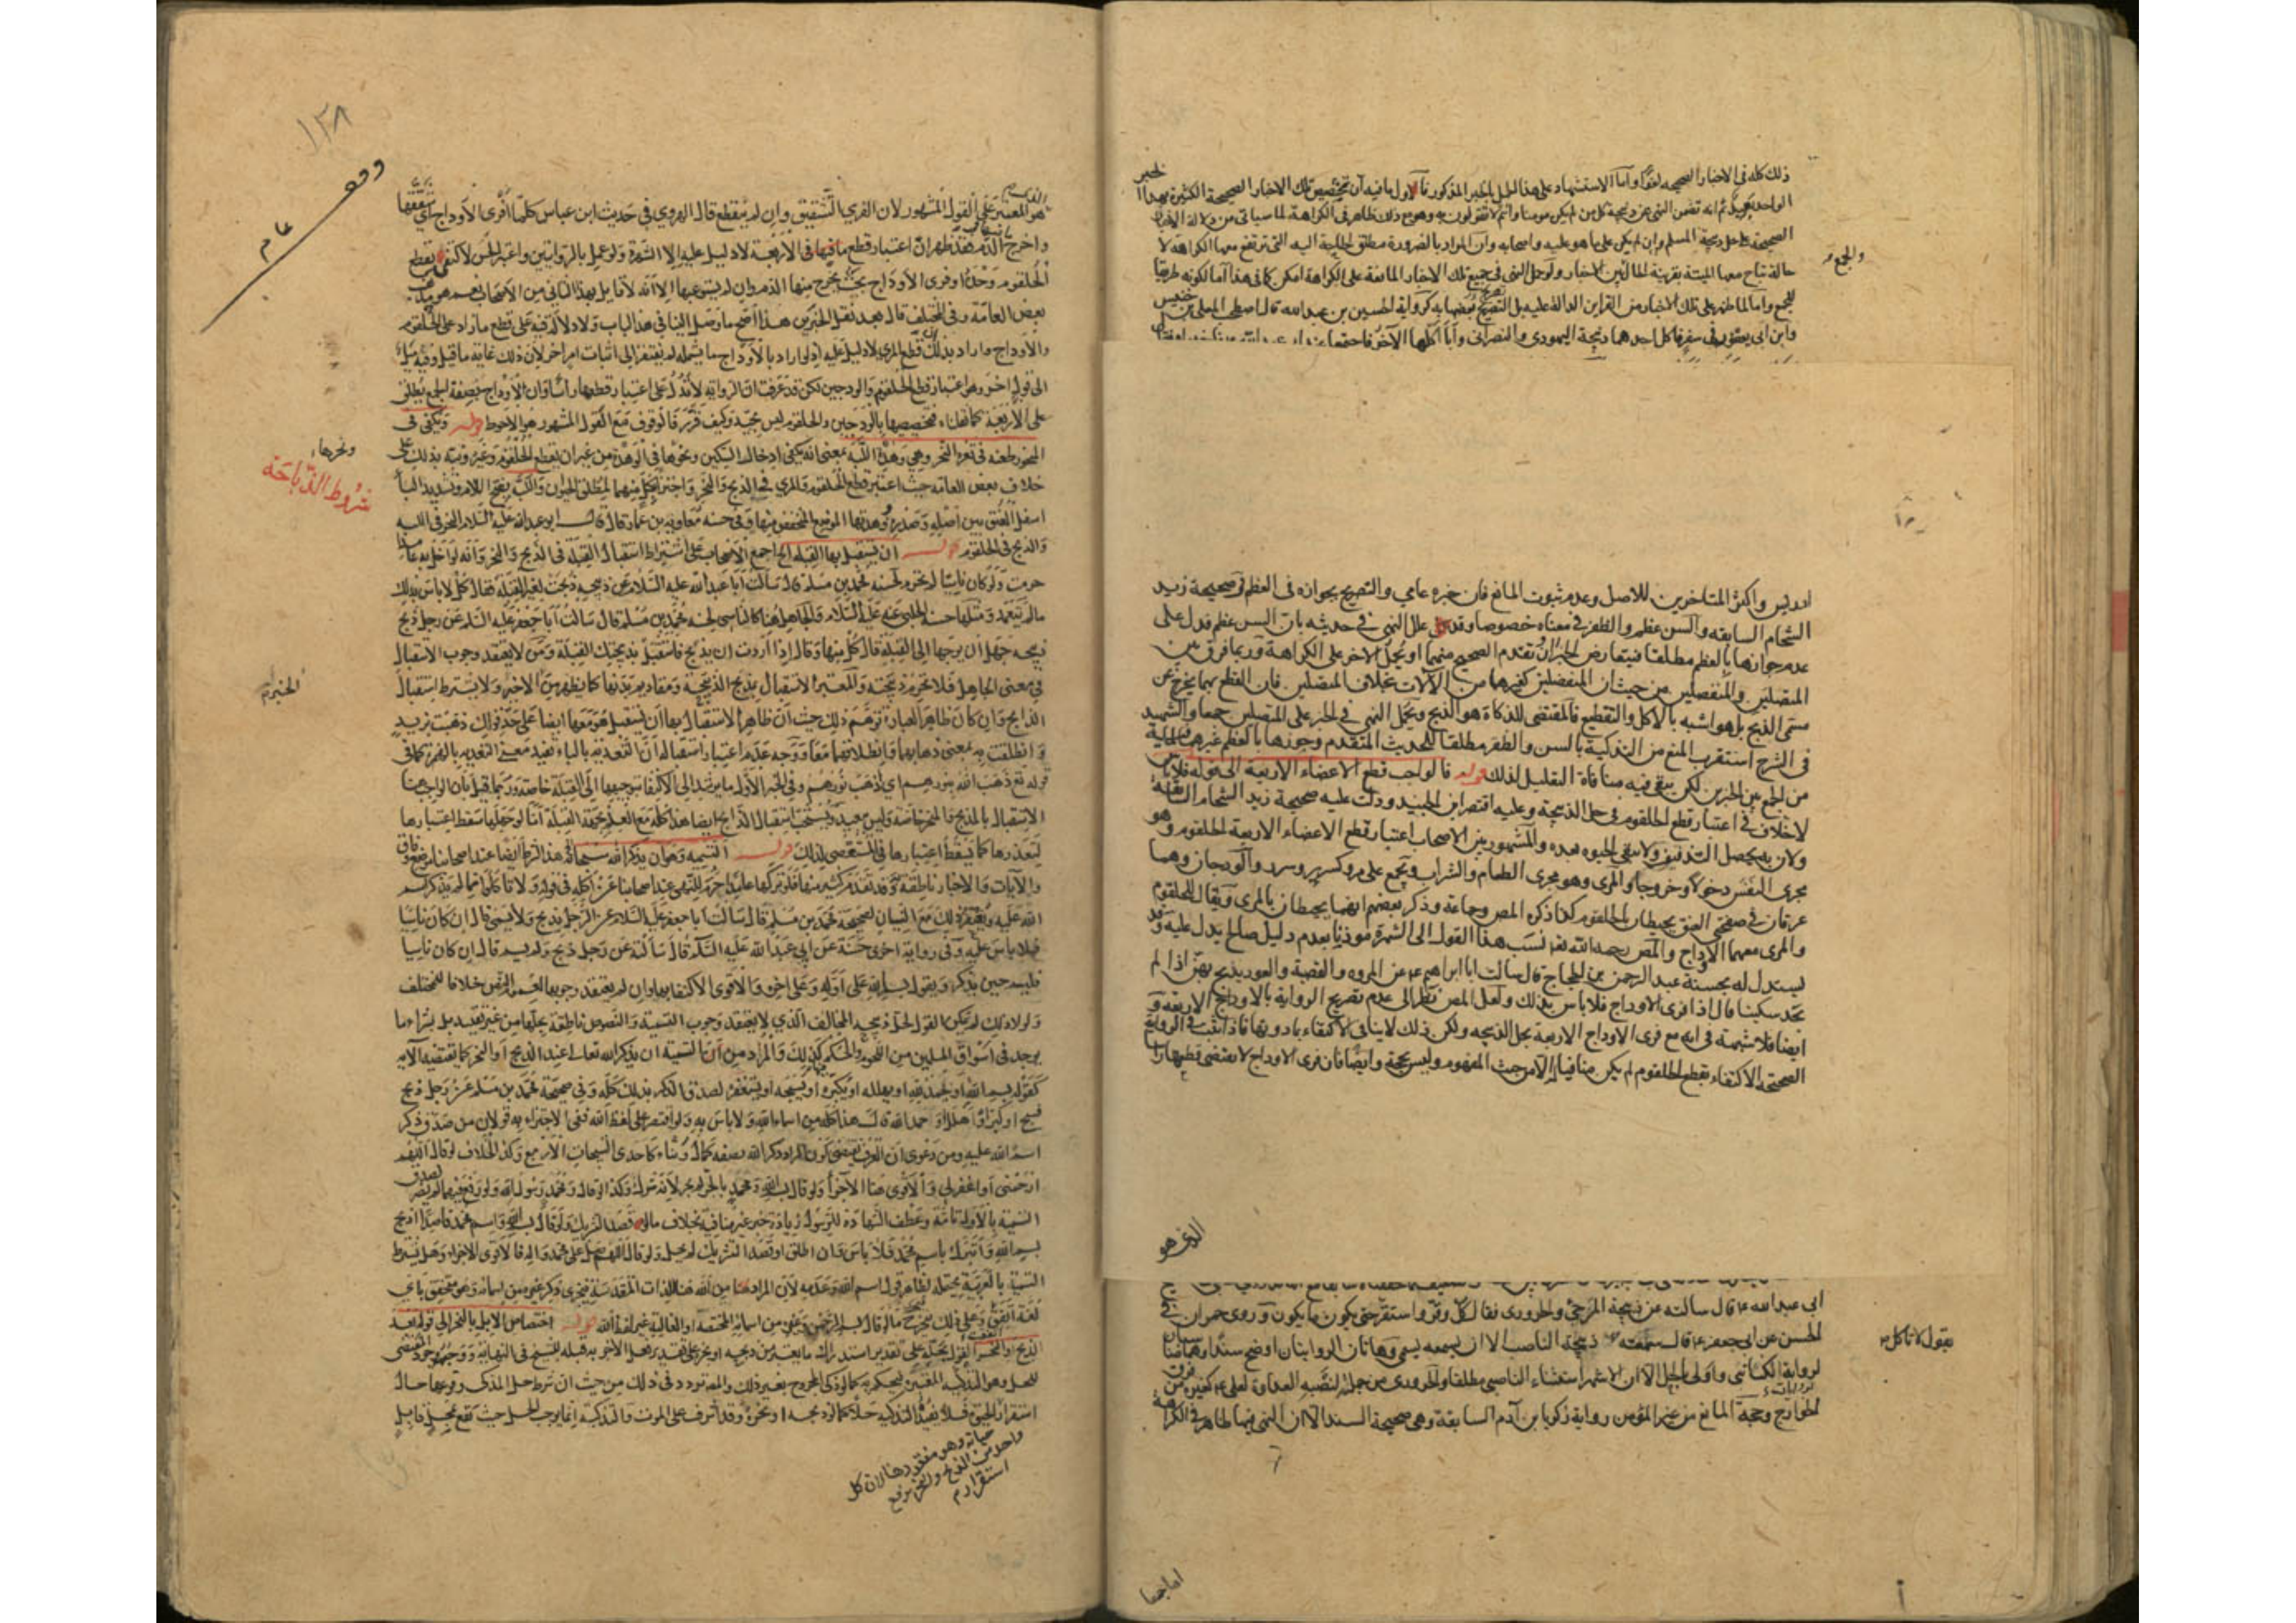 ذلك كله في الاخبار الصحيحه لغوا واما الاستشهاد على هذا الحمل بالخبر المذكور فالاول ما فيه ان تخصيص تلك الاخبار الصحيحة الكثيرة بهذا الخبر
الواحد بعيد ثم انه تضمن النهي عن ذبيحة كل من لم يكن مومنا وانتم لا تقولون به وهو مع ذلك ظاهر في الكراهة لما سياتي من دلالة الاخبار
الصحيحة على حل ذبيحة المسلم وان لم يكن على ما هو عليه واصحابه وان المراد بالضرورة مطلق الحاجة اليه التي ترتفع معها الكراهة لا
حالة تباح معها الميتة بقرينة الحال بين الاخبار ولو حمل النهي في جميع تلك الاخبار المانعة على الكراهة امكن كما في هذا اما لكونه طريقا
للجمع واما لما ظهر على تلك الاخبار من القراين الدالة عليه بل التصريح في بعضها به كرواية الحسين بن عبد الله قال اصطحب المعلى بن خنيس
وابن ابي يعفور في سفر فاكل احدهما ذبيحة اليهودي والنصراني وأبا اكلها الآخر فاجتمعا عند ابي عبد الله
والجمع
ادريس واكثر المتاخرين للاصل وعدم ثبوت المانع فان خبره عامي والتصريح بجوازه في العظم في صحيحة زيد
الشحام السابقه والسن عظم والظفر في معناه خصوصا وقد علل النهي في حديثه بان السن عظم فدل على
عدم جوازها بالعظم مطلقا فيتعارض الخبران تقدم الصحيح منهما او يحمل الاخر على الكراهة وربما فرق بين
المتصلين والمنفصلين من حيث ان المنفصلين كغيرهما من الآلات بخلاف المتصلين فان القطع بهما يخرج عن
مسمى الذبح بل هو اشبه بالاكل والتقطيع فالمقتضى للذكاة هو الذبح ويحمل النهي في الخبر على المتصلين جمعا والشهيد
في الشرح استقرب المنع من التذكية بالسن والظفر مطلقا للحديث المتقدم وجوزها بالعظم غيرهما لما فيه
من الجمع بين الخبرين لكن يبقى فيه منافاة التعليل لذلك قوله فالواجب قطع الاعضاء الاربعة الى قوله فلا باس
لا خلاف في اعتبار قطع الحلقوم في حل الذبيحة وعليه اقتصر ابن الجنيد ودلت عليه صحيحة زيد الشحام السابقة
ولان به يحصل التذفيف ولا تبقى الحيوه بعده والمشهور بين الاصحاب اعتبار قطع الاعضاء الاربعة الحلقوم وهو
مجرى النفس دخولا وخروجا والمرى وهو مجرى الطعام والشراب ويجمع على مرو كسرير وسرر والودجان وهما
عرقان في صفحتي العنق يحيطان بالحلقوم كذا ذكره المص وجماعة وذكر بعضهم انهما يحيطان بالمرى ويقال للحلقوم
والمرى معهما الاوداج والمص رحمه الله نسب هذا القول الى الشهرة موذنا بعدم دليل صالح يدل عليه وقد
يستدل له بحسنة عبد الرحمن بن الحجاج قال سالت ابا ابراهيم ع عن المروه والقصبة والعود يذبح بهن اذا لم
يجد سكينا قال اذا فرى الاوداج فلا باس بذلك ولعل المص نظر الى عدم تصريح الرواية بالاوداج الاربعة و
ايضا فلا شبهة في انه مع فرى الاوداج الاربعة يحل الذبيحه ولكن ذلك لا ينافي الاكتفاء بما دونها فاذا ثبت في الرواية
الصحيحة الاكتفاء بقطع الحلقوم لم يكن منافيا الا من حيث المفهوم وليس بحجة وايضا فان فرى الاوداج لا يقتضي قطعها راسا
الذي هو
ابي عبد الله ع قال سالته عن ذبيحة المرجئ والحروري فقال كل وقر واستقر حتى يكون ما يكون وروى حمران في
الحسن عن ابي جعفر ع قال سمعته ذبيحة الناصب الا ان يسمعه يسمي وهاتان الروايتان اوضح سندا
لرواية الكناني واولى بالحمل الا ان الاشهر استثناء الناصبي مطلقا والحروري من جملة لنصبه العداوة لعلي ع كغيره من فرق
الخوارج وحجة المانع من غير المؤمن رواية زكريا بن آدم السابقة وهي صحيحة السند الا ان النهي فيها ظاهر في الكراهة
يقول لا تاكل
١٣٨
هو المعتبر على القول المشهور لان الفري التشقيق وان لم ينقطع قال الهروي في حديث ابن عباس كلما أفرى الاوداج أي شققها
واخرج الدم فقد ظهر ان اعتبار قطع ما في الاربعة لا دليل عليه الا الشهرة ولو عمل بالروايتين واعتبر الحسن لاكتفى بقطع
الحلقوم وحده او فرى الاوداج بحيث يخرج منها الدم وان لم يستوعبها الا انه لا قايل بهذا الثاني من الاصحاب نعم هو مذهب
بعض العامة وفي المختلف قال بعد نقل الخبرين هذا اصح ما وصل الينا في هذا الباب ولا دلالة فيه على قطع ما زاد على الحلقوم
والاوداج واراد بذلك ان قطع المرئ لا دليل عليه اذ لو اراد بالاوداج ما يشمله لم يفتقر الى اثبات امر اخر لان ذلك غاية ما قيل وفيه ميل
الى قول اخر وهو اعتبار قطع الحلقوم والودجين لكن قد عرفت ان الرواية لا تدل على اعتبار قطعها راسا وان الاوداج بصيغة الجمع يطلق
على الاربعة كما نقلناه فتخصيصها بالودجين والحلقوم ليس بجيد وكيف قرر فالوقوف مع القول المشهور هو الاحوط قوله ويكفي في
المنحور طعنه في ثغرة النحر وهي وهدة اللبة بمعنى انه يكفي ادخال السكين ونحوها في الوهدة من غير ان يقطع الحلقوم وغيره ونبه بذلك على
خلاف بعض العامة حيث اعتبر قطع الحلقوم والمري في الذبح والنحر واجتزأ بكل منهما لمطلق الحيوان واللبة بفتح اللام وتشديد الباء
اسفل العنق بين اصله وصدره وهدتها الموضع المنخفض منها وفي حسنة معاوية بن عمار قال قال ابو عبد الله عليه السلام النحر في اللبة
والذبح في الحلقوم قوله ان يستقبل بها القبله الخ اجمع الاصحاب على اشتراط استقبال القبلة في الذبح والنحر وانه لو اخل به عامدا
حرمت ولو كان ناسيا لم تحرم لحسنة محمد بن مسلم قال سالت ابا عبد الله عليه السلام عن ذبيحه ذبحت لغير القبلة فقال كل لا باس بذلك
مالم يتعمد ومثلها حسنة الحلبي عنه عليه السلام والجاهل هنا كالناسي لحسنة محمد بن مسلم قال سالت أبا جعفر عليه السلم عن رجل ذبح
ذبيحه جهل ان يوجهها الى القبلة قال كل منها وقال اذا أردت ان تذبح فاستقبل بذبيحتك القبلة ومن لا يعتقد وجوب الاستقبال
في معنى الجاهل فلا تحرم ذبيحته والمعتبر الاستقبال بمذبح الذبيحة ومقاديم بدنها كما يظهر من الاخير ولا يشترط استقبال
الذابح وان كان ظاهر العبارة توهم ذلك حيث ان ظاهر الاستقبال بها ان يستقبل هو معها ايضا على حد قولك ذهبت بزيد
وانطلقت به بمعنى ذهابهما وانطلاقهما معا ووجه عدم اعتبار استقباله ان التعدية بالباء تفيد معنى التعدية بالهمزة كما في
قوله تع ذهب الله بنورهم اي اذهب نورهم وفي الخبر الاول ما يرشد الى الاكتفاء بتوجيهها الى القبلة خاصة وربما قيل بان الواجب هنا
الاستقبال بالمذبح والمنحر خاصة وليس ببعيد ويستحب استقبال الذابح ايضا هذا كله مع العلم بجهة القبلة اما لو جهلها سقط اعتبارها
لتعذرها كما يسقط اعتبارها في المستعصي لذلك قوله التسميه وهو ان يذكر الله سبحانه هذا الشرط ايضا عند اصحابنا موضع وفاق
والآيات والاخبار ناطقة به وقد تقدم كثير منها فلو تركها عامدا حرم للنهي عند اصحابنا عن أكله في قوله ولا تاكلوا مما لم يذكر اسم
الله عليه ويغتفر ذلك مع النسيان لصحيحة محمد بن مسلم قال سالت ابا جعفر عليه السلام عن الرجل يذبح ولا يسمي قال ان كان ناسيا
فلا باس عليه وفي رواية اخرى حسنة عن ابي عبد الله عليه السلام قال سألته عن رجل ذبح ولم يسم قال ان كان ناسيا
فليسم حين يذكر ويقول بسم الله على اوله وعلى اخره والاقوى الاكتفاء بها وان لم يعتقد وجوبها لعموم النص خلافا للمختلف
ولولا ذلك لم يمكن القول بحل ذبيحة المخالف الذي لا يعتقد وجوب التسمية والنصوص ناطقة بحلها من غير تقييد بل بشراء ما
يوجد في اسواق المسلمين من اللحوم والحكم كذلك والمراد من التسمية ان يذكر الله تعالى عند الذبح او النحر كما تقتضيه الآية
كقوله بسم الله او الحمد لله او يهلله او يكبره او يسبحه او يستغفره لصدق الذكر بذلك كله وفي صحيحة محمد بن مسلم عن رجل ذبح
فسبح او كبر او هلل او حمد الله قال هذا كله من اسماء الله ولا باس به ولو اقتصر على لفظ الله ففي الاجتزاء به قولان من صدق ذكر
اسم الله عليه ومن دعوى ان العرف يقتضي كون المراد ذكر الله بصفة كمال وثناء كاحدى التسبيحات الاربع وكذا الخلاف لو قال اللهم
ارحمني او اغفر لي والاقوى هنا الاجزأ ولو قال بسم الله ومحمد بالجر لم يجز لانه شرك وكذا لو قال ومحمد رسول الله ولو رفع فيهما لم يضر لصدق
التسمية بالاول تامة وعطف الشهادة للرسول زيادة خير غير منافية بخلاف ما لو قصد التشريك ولو قال بسم الله واسم محمد قاصدا اذبح
بسم الله واتبرك باسم محمد فلا باس وان اطلق او قصد التشريك لم يحل ولو قال اللهم صل على محمد وال محمد فالاقوى الاجزاء وهل يشترط
التسمية بالعربية يحتمله لظاهر قوله اسم الله وعدمه لان المراد هنا من الله هنا الذات المقدسة فيجزى ذكر غيره من اسمائه وهي متحقق باي
لغة اتفق وعلى ذلك يتخرج ما لو قال بسم الرحمن وغيره من اسمائه المختصة او الغالبة غير لفظ الله قوله اختصاص الابل بالنحر الى قوله بعد
الذبح او النحر
للحل وهو التذكيه المعتبره فيحكم به كما لو ذكى المجروح بغير ذلك والمص تردد في ذلك من حيث ان شرط حل المذكى وقوعها حال
استقرار الحيوة فلا يفيد التذكيه حلا كما لو ذبحه او نحره وقد أشرف على الموت والتذكية إنما يوجب الحل حيث تقع بمحل قابل
حياته وهو مفقود هنا لان كل
واحد من الذبح والنحر يرفع
استقرار
ونحرها
شروط الذباحة